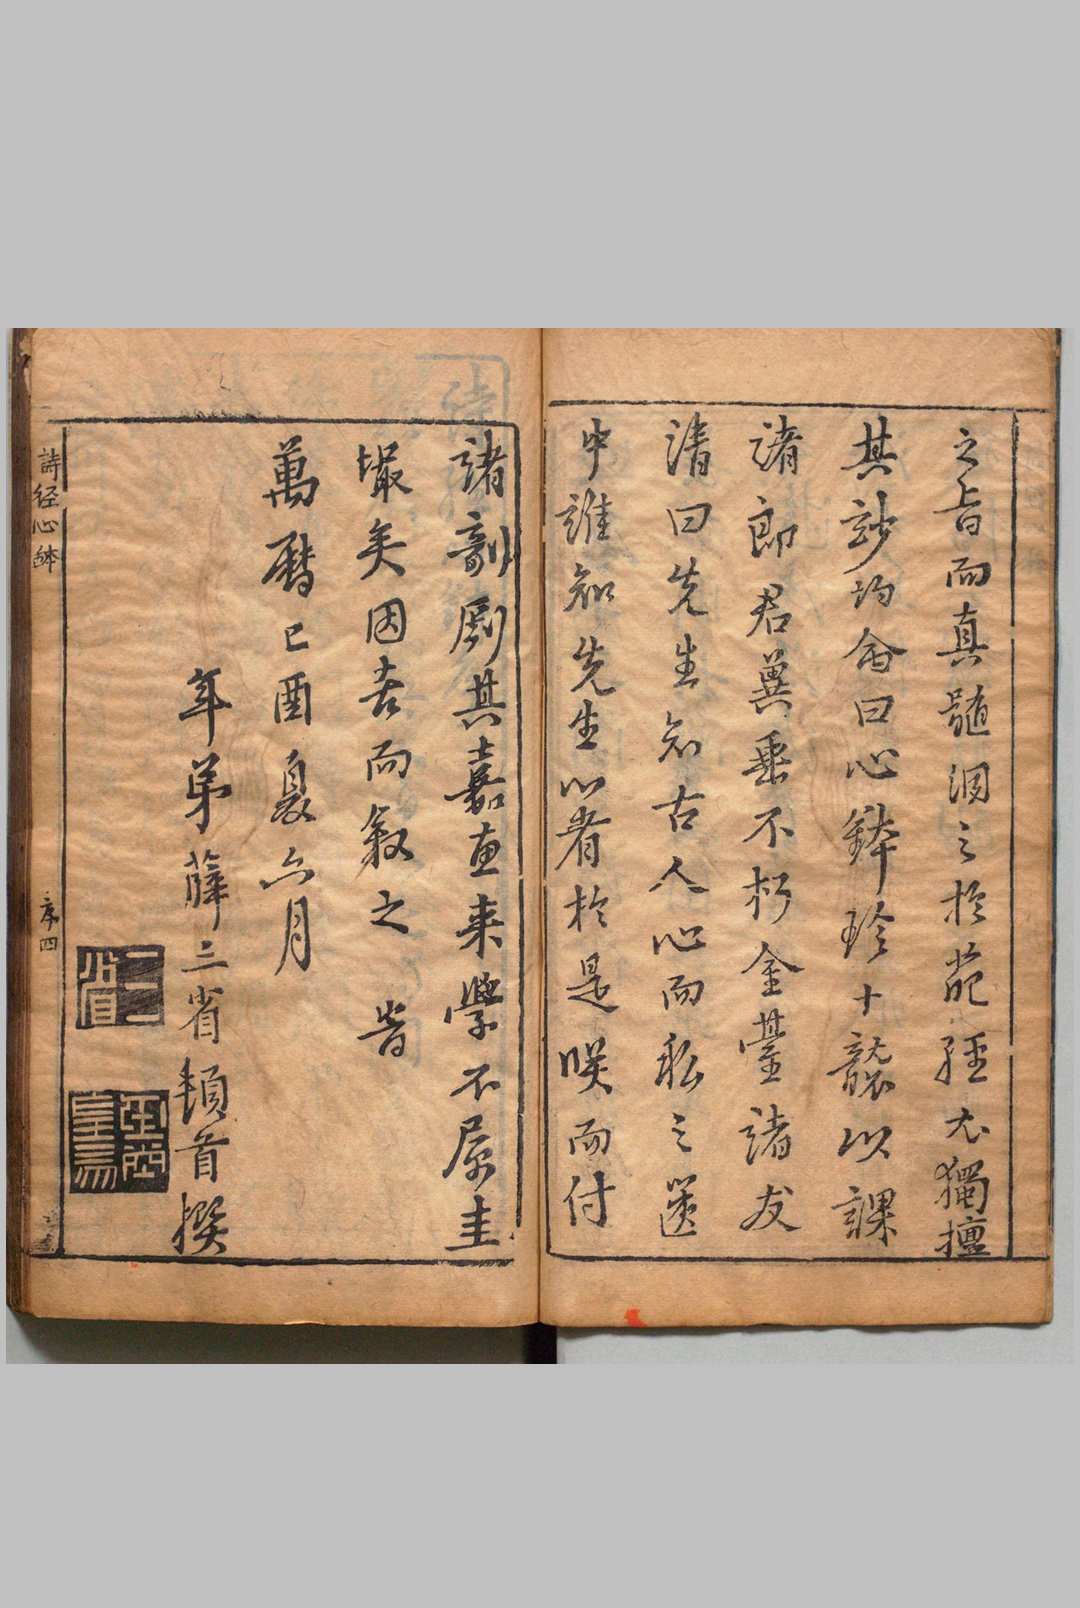 之旨而真髓洄之於葩經尤獨擅
其玅均命曰心鉢珍十襲以課
諸郎君冀垂不朽金臺諸友
清曰先生知古人心而私之篋
中誰知先生心者於是咲而付
諸剞劂其嘉惠来學不啻圭
撮矣因喜而叙之 皆
萬曆己酉夏六月
年弟薛三省頓首撰
三省
詩经心鉢
序四